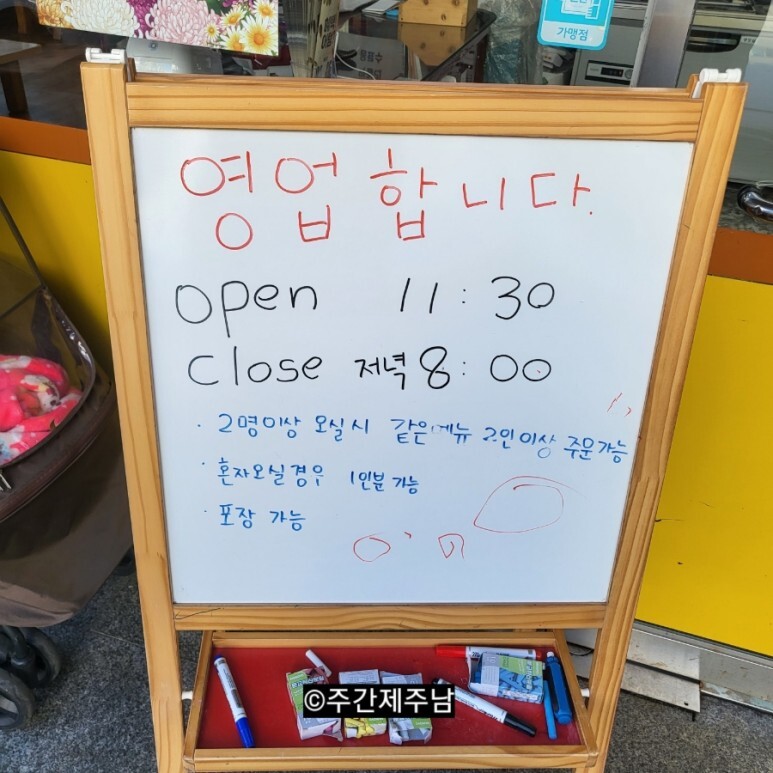 가맹점
영업합니다.
open 11:30
close 저녁 8:00
· 2명이상 오실시 같은메뉴 2인이상 주문가능
· 혼자오실경우 1인분 가능
· 포장 가능
©주간제주남